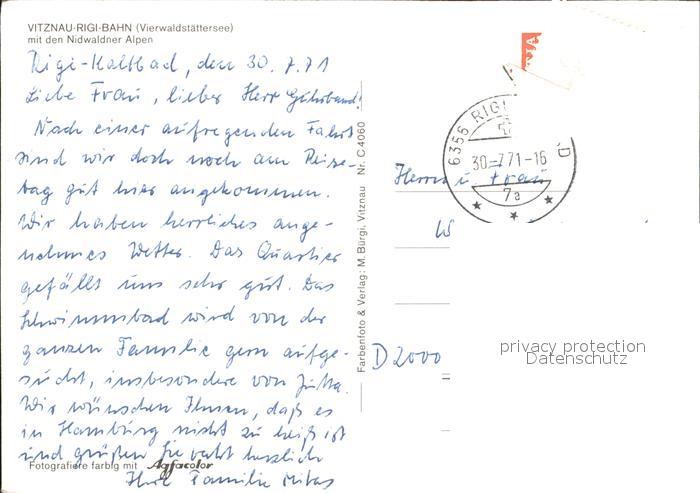 VITZNAU-RIGI-BAHN (Vierwaldstättersee)
mit den Nidwaldner Alpen
Rigi-Kaltbad, den 30.7.71
Liebe Frau, lieber Herr
Nach einer aufregenden Fahrt
sind wir doch noch am Reise-
tag gut hier angekommen.
Wir haben herrliches ange-
nehmes Wetter. Das Quartier
gefällt uns sehr gut. Das
Schwimmbad wird von der
ganzen Familie gern aufge-
sucht, insbesondere von Jutta.
Wir wünschen Ihnen, daß es
in Hamburg nicht zu heiß ist
und grüßen Sie recht herzlich
Ihre Familie
Fotografiere farbig mit Agfacolor
Farbenfoto & Verlag: M. Bürgi, Vitznau Nr. C 4060
6356 RIGI
30.-7.71-16
7a
Herrn u Frau
W
D 2000
privacy protection
Datenschutz